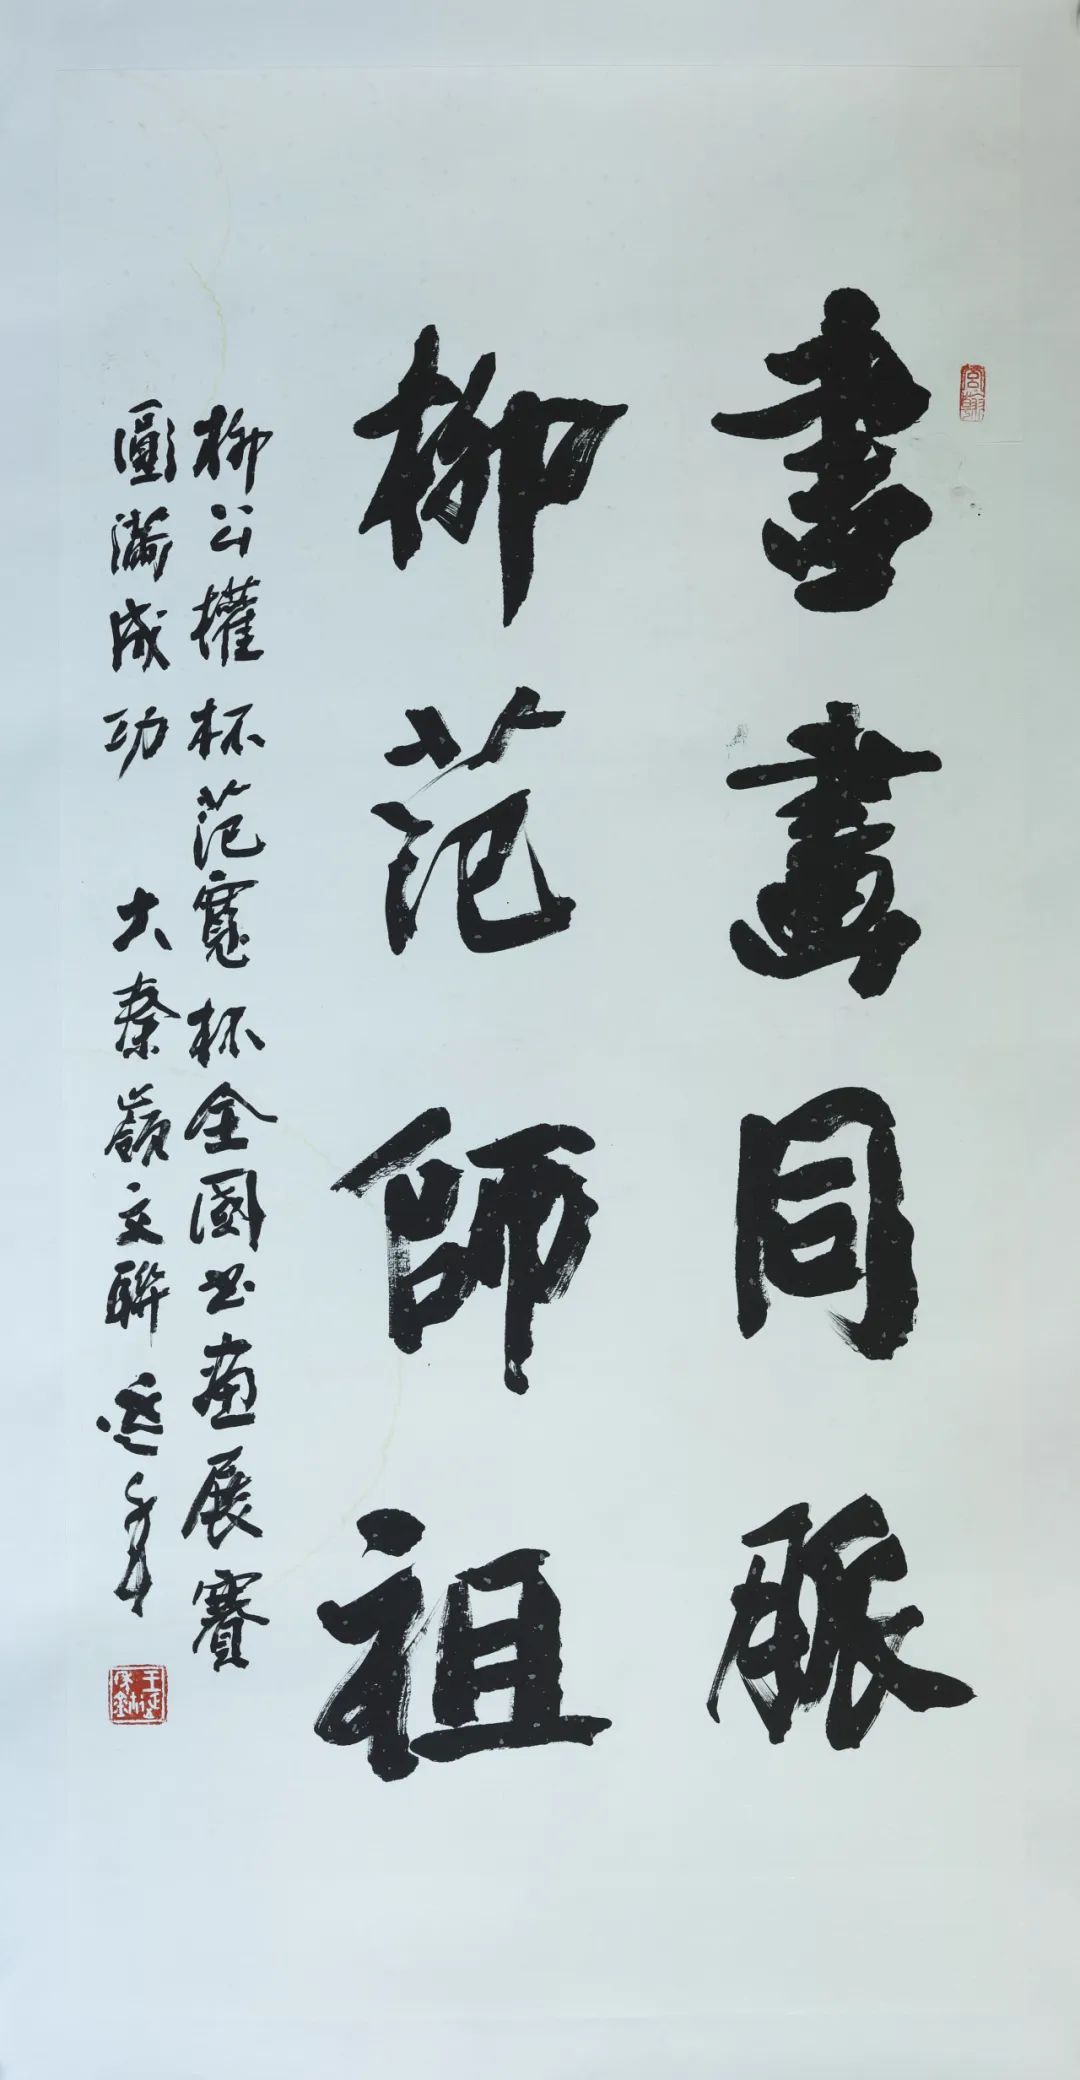 書畫同脈
柳范師祖
柳公權杯范寬杯全國书畫展賽
圓滿成功 大秦嶺文聯